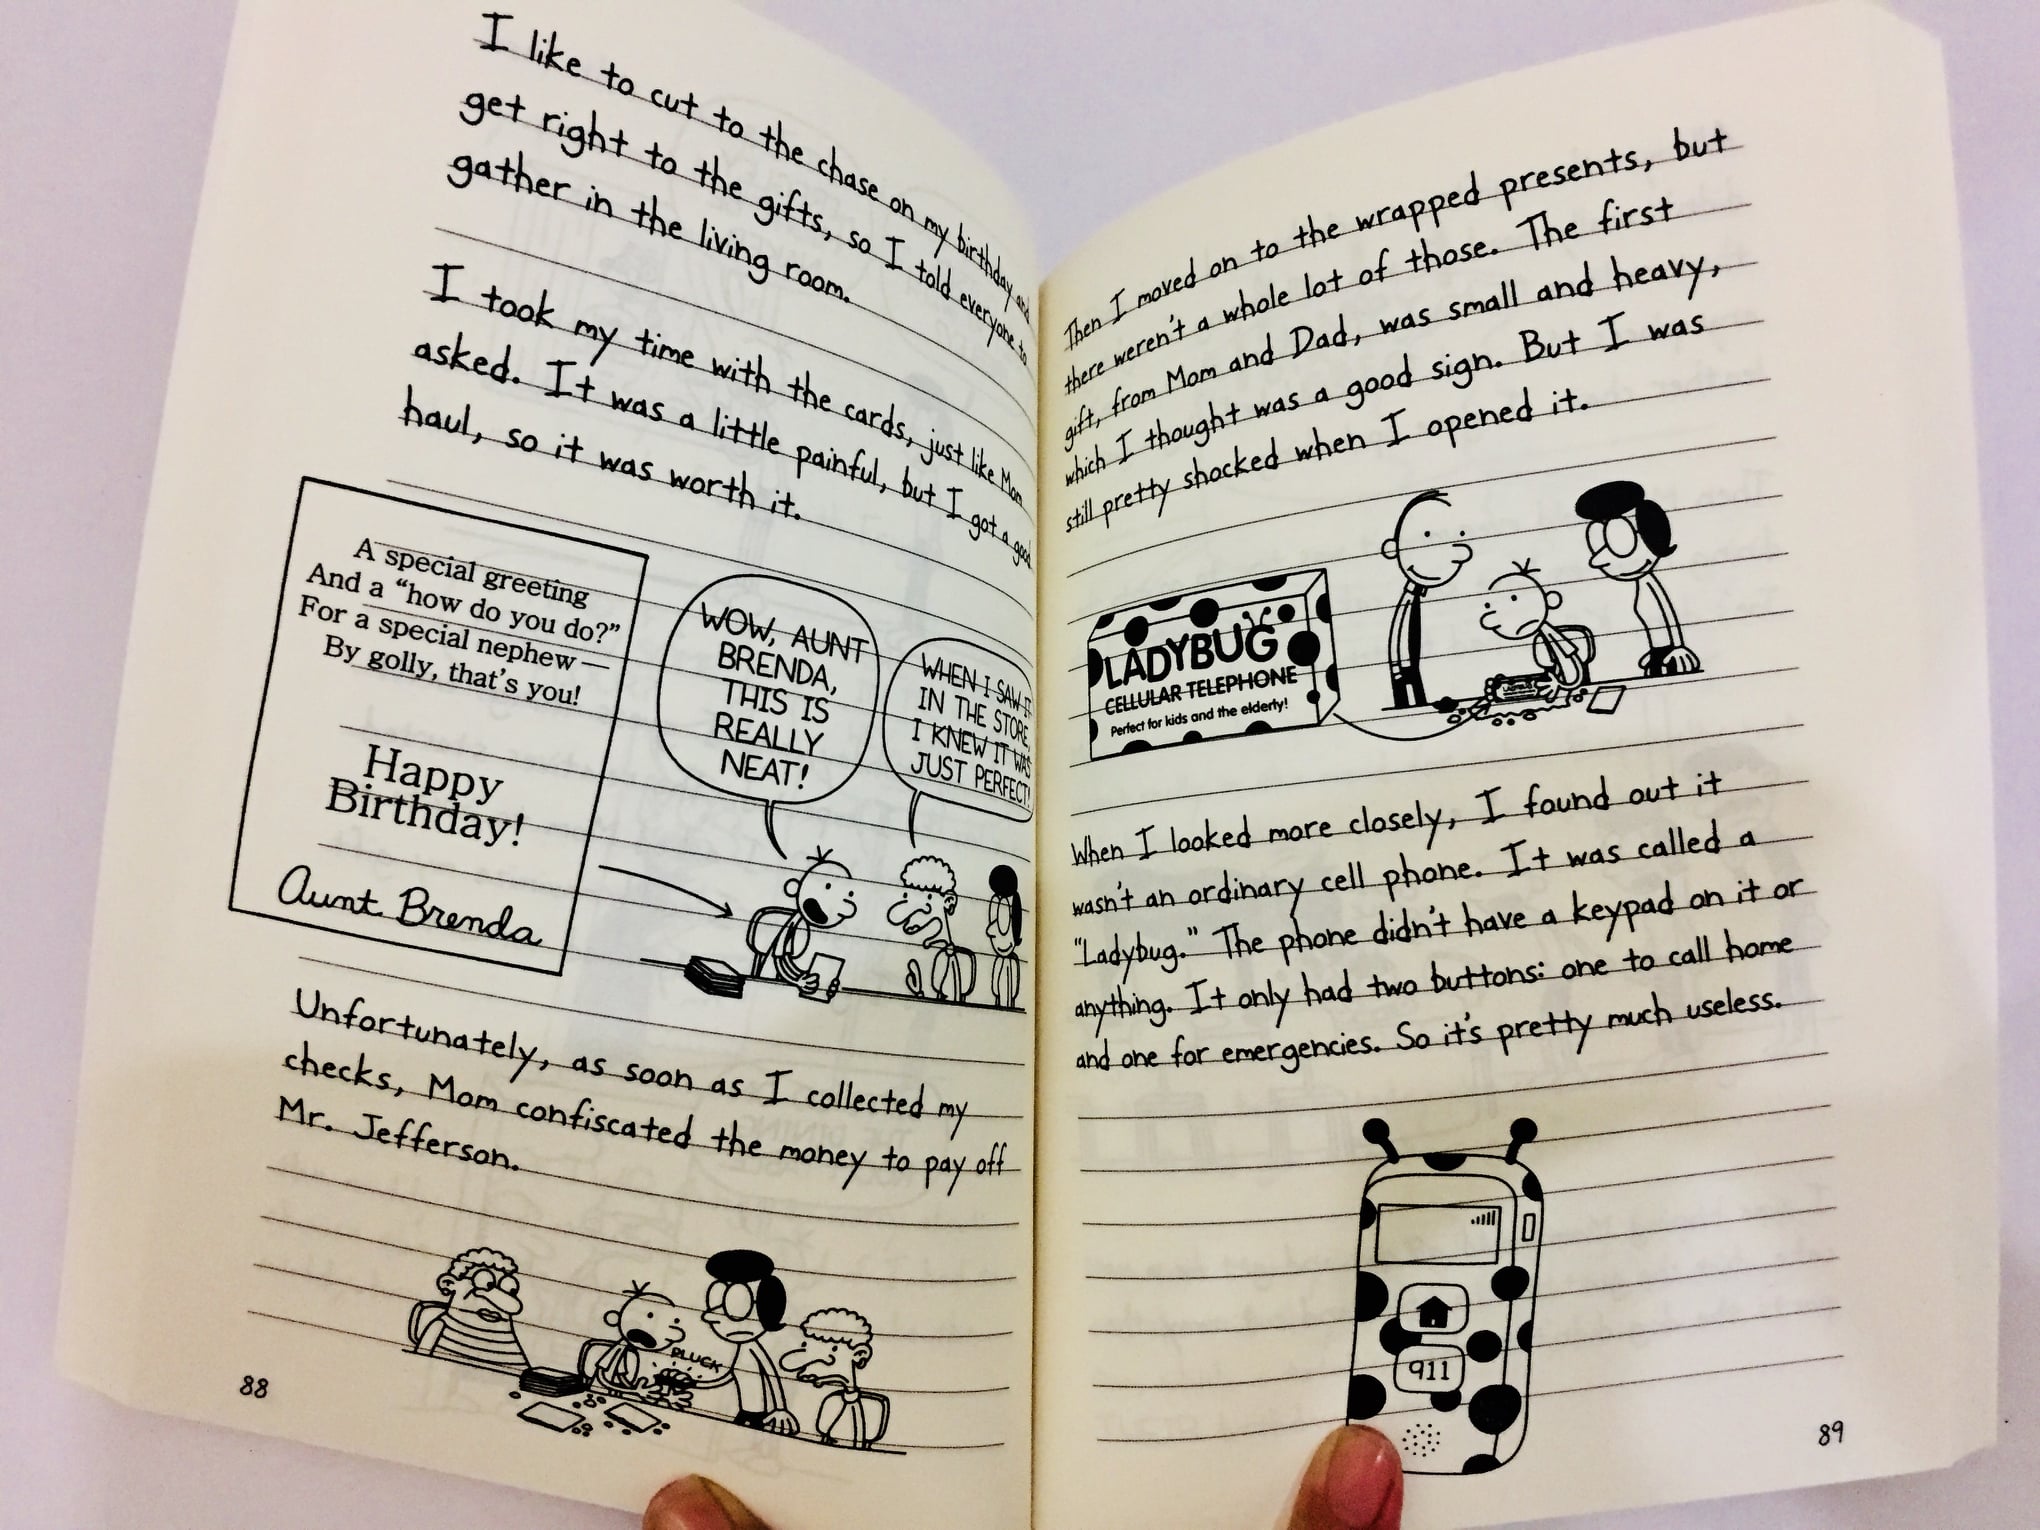 I like to cut to the chase on my birthday and
get right to the gifts, so I told everyone to
gather in the living room.
I took my time with the cards, just like Mom
asked. It was a little painful, but I got a good
haul, so it was worth it.
A special greeting
And a “how do you do?”
For a special nephew—
By golly, that's you!
Happy
Birthday!
Aunt Brenda
WOW, AUNT
BRENDA,
THIS IS
REALLY
NEAT!
WHEN I SAW IT
IN THE STORE,
I KNEW IT WAS
JUST PERFECT!
Unfortunately, as soon as I collected my
checks, Mom confiscated the money to pay off
Mr. Jefferson.
PLUCK
88
Then I moved on to the wrapped presents, but
there weren't a whole lot of those. The first
gift, from Mom and Dad, was small and heavy,
which I thought was a good sign. But I was
still pretty shocked when I opened it.
LADYBUG
CELLULAR TELEPHONE
Perfect for kids and the elderly!
When I looked more closely, I found out it
wasn't an ordinary cell phone. It was called a
"Ladybug." The phone didn't have a keypad on it or
anything. It only had two buttons: one to call home
and one for emergencies. So it's pretty much useless.
911
89